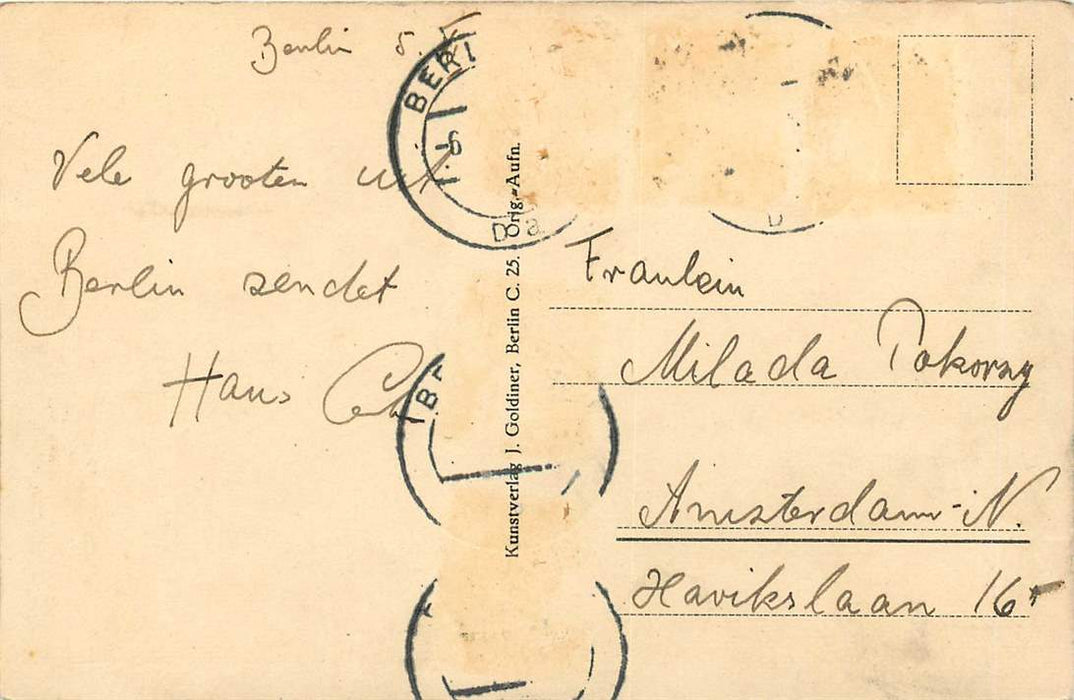 Berlin 5.
Vele grooten uit
Berlin sendet
Hans
BERL
6
Da
D
BE
Kunstverlag J. Goldiner, Berlin C. 25. Orig.-Aufn.
Fraulein
Milada Pokorny
Amsterdam-N.
Havikslaan 16